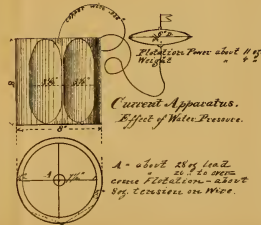 copper wire
Flotation Power about 11 oz
Weight " 4 "
B
Current Apparatus.
Effect of Water Pressure.
8"
A = about 28 oz lead
" 20 " to over
come Flotation - about
8 oz. tension on Wire.
A